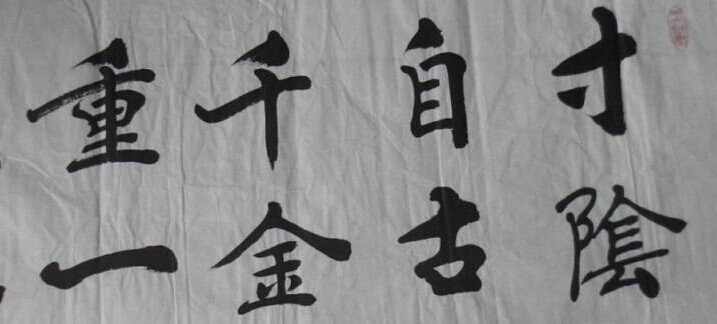 寸陰
自古
千金
重一